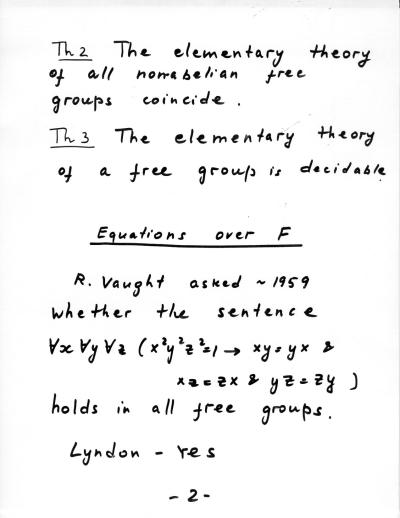 Th 2 The elementary theory
of all nonabelian free
groups coincide.
Th 3 The elementary theory
of a free group is decidable
Equations over F
R. Vaught asked ~ 1959
whether the sentence
∀x ∀y ∀z (x²y²z²=1 → xy=yx &
xz=zx & yz=zy )
holds in all free groups.
Lyndon - Yes
- 2 -